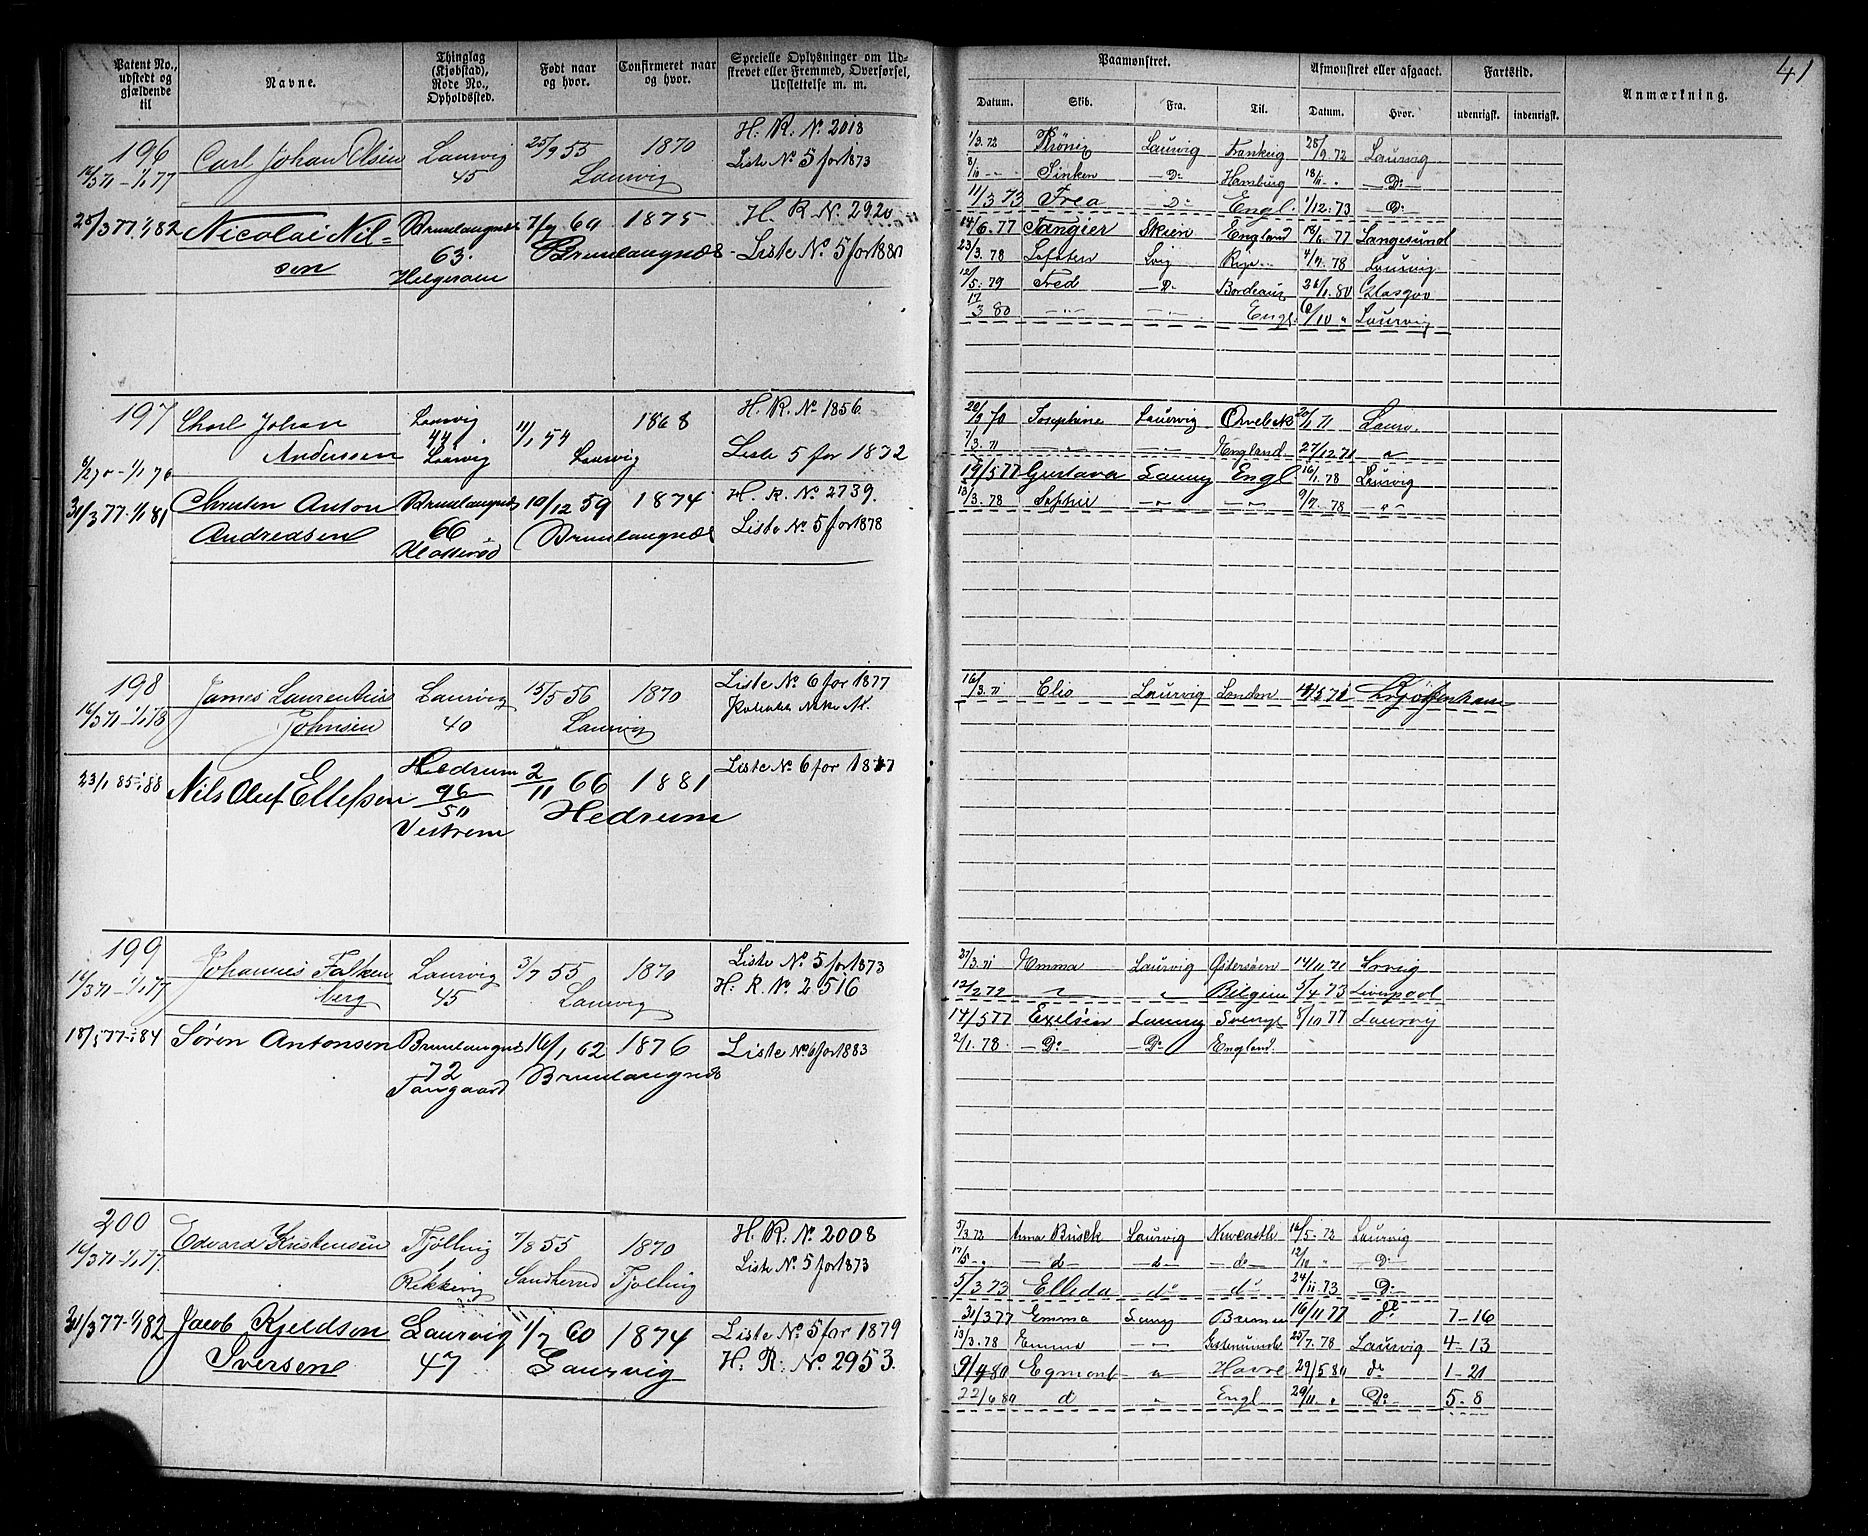 Patent No., udstedt og gjældende til
Navne.
Thinglag (Kjøbstad), Rode No., Opholdssted.
Født naar og hvor.
Confirmeret naar og hvor.
Specielle Oplysninger om Udskrevet eller Fremmed, Overførsel, Udslettelse m. m.
196 Carl Johan Olsen Laurvig 25/9 55 1870 H. R. No 2018
45 Laurvig Liste No 5 for 1873
25/3 77-1/1 82 Nicolai Nil- Brunlangnæs 7/9 60 1875 H. R. No 2920
sen 63. Brunlangnæs Liste No 5 for 1880
Helgeroae
197 Charl Johan Laurvig 11/1 54 1868 H. R. No 1856
Anderssen 44 Laurvig Laurvig Liste 5 for 1872
6/2 70-1/1 76
31/3 77-1/1 81 Christen Anton Brunlangnæs 10/12 59 1874 H. R. No 2739.
Andredsen 66 Brunlangnæs Liste No 5 for 1878
198 James Laurentius Laurvig 15/5 56 1870 Liste No 6 for 1877
Johnsen 40 Laurvig
23/1 85-1/1 88 Nils Oluf Ellefsen Hedrum 2/11 66 1881 Liste No 6 for 1877
96/50 Hedrum
Vestrem
199 Johannes Falken Laurvig 3/7 55 1870 Liste No 5 for 1873
berg 45 Laurvig H. R. No 2516
16/3 71-1/1 77
18/5 77-1/1 84 Søren Antonsen Brunlangnæs 16/1 62 1876 Liste No 6 for 1883
72 Brunlangnæs
Tangaard
200 Edvard Kristensen Tjølling 7/8 55 1870 H. R. No 2008
16/3 71-1/1 77. Sandherred Tjølling Liste No 5 for 1873
31/3 77-1/1 82 Jacob Kjeldsen Laurvig 1/7 60 1874 Liste No 5 for 1879
Iversen 47 Laurvig H. R. No 2953.
41
Paamønstret.
Afmønstret eller afgaaet.
Fartstid.
Anmærkning.
Datum. Skib. Fra. Til. Datum. Hvor. udenrigsk. indenrigsk.
1/3. 72 Laurvig 28/9 72 Laurvig
Sinken Do Hamburg Do
11/3 73 Frea Do Engl. 1/12. 73 Do
14/6. 77 Tangier Skien England 18/6 77 Langesund
23/3. 78 Lofoten Lvig 4/7. 78 Laurvig
12/5. 79 Fred Do Bordeaux 26/1. 80 Glasgow
17/3 80 Engl. 6/10 " Laurvig
20/3 70 Josephine Laurvig 20/1 71 Laurv.
7/3. 71 England 27/12. 71 "
19/5 77 Gustava Laurvig Engl 16/1. 78 Laurvig
13/3. 78 Sophie 9/7. 78
16/3. 71 Elis Laurvig London 14/5 71 Kjøbenhavn
27/3. 71 Emma Laurvig Østersøen 14/11. 71 Lrvig
12/2 72 " Belgien 5/4. 73 Liverpool
14/5 77 Exelsior Laurvig 8/10 77 Laurvig
2/1. 78. Do Do England.
5/3 72 Anna Busck Laurvig Newcastle 16/5. 72 Laurvig
17/5 " d d d 12/10 " Do
5/3 73 Elleda do do 24/11. 73 Do
31/3 77 Emma Laurvig Bremen 16/11 77 do 7-16
13/3. 78 Emma 25/7. 78 Laurvig 4-13
Egmont " Havre 29/5 80 do 1-21
22/6 80 d " Engl 29/11. " Do 5-8